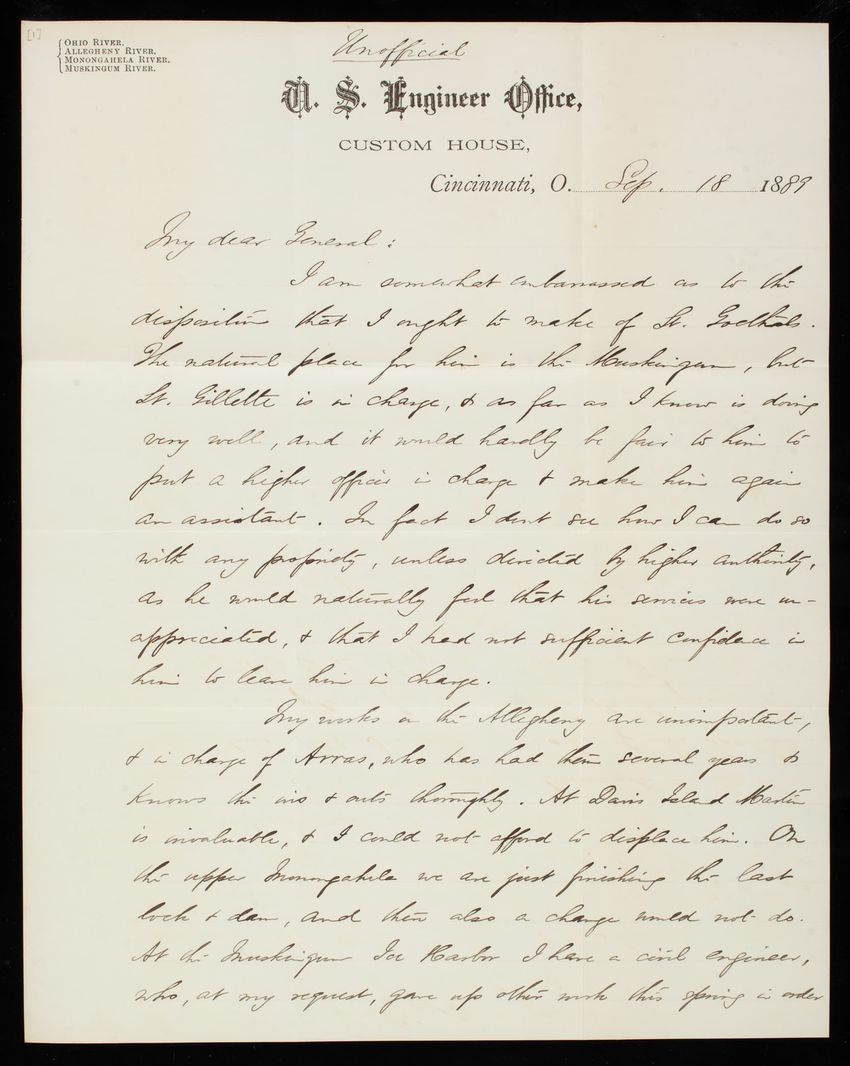 [1]
Ohio River.
Allegheny River.
Monongahela River.
Muskingum River.
Unofficial
U. S. Engineer Office,
CUSTOM HOUSE,
Cincinnati, O. Sep. 18 1889
My dear General:
I am somewhat embarrassed as to the
disposition that I ought to make of Lt. Goethals.
The natural place for him is the Muskingum, but
Lt. Gillette is in charge, & as far as I know is doing
very well, and it would hardly be fair to him to
put a higher officer in charge & make him again
an assistant. In fact I don't see how I can do so
with any propriety, unless directed by higher authority,
as he would naturally feel that his services were un-
appreciated, & that I had not sufficient confidence in
him to leave him in charge.
My works on the Allegheny are unimportant,
& in charge of Arras, who has had them several years &
knows the ins & outs thoroughly. At Davis Island Martin
is invaluable, & I could not afford to displace him. On
the upper Monongahela we are just finishing the last
lock & dam, and then also a change would not do.
At the Muskingum Ice Harbor I have a civil engineer,
who, at my request, gave up other work this spring in order